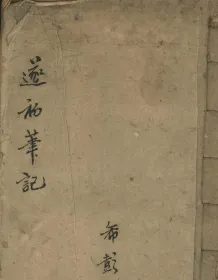 遂初筆記
希彭